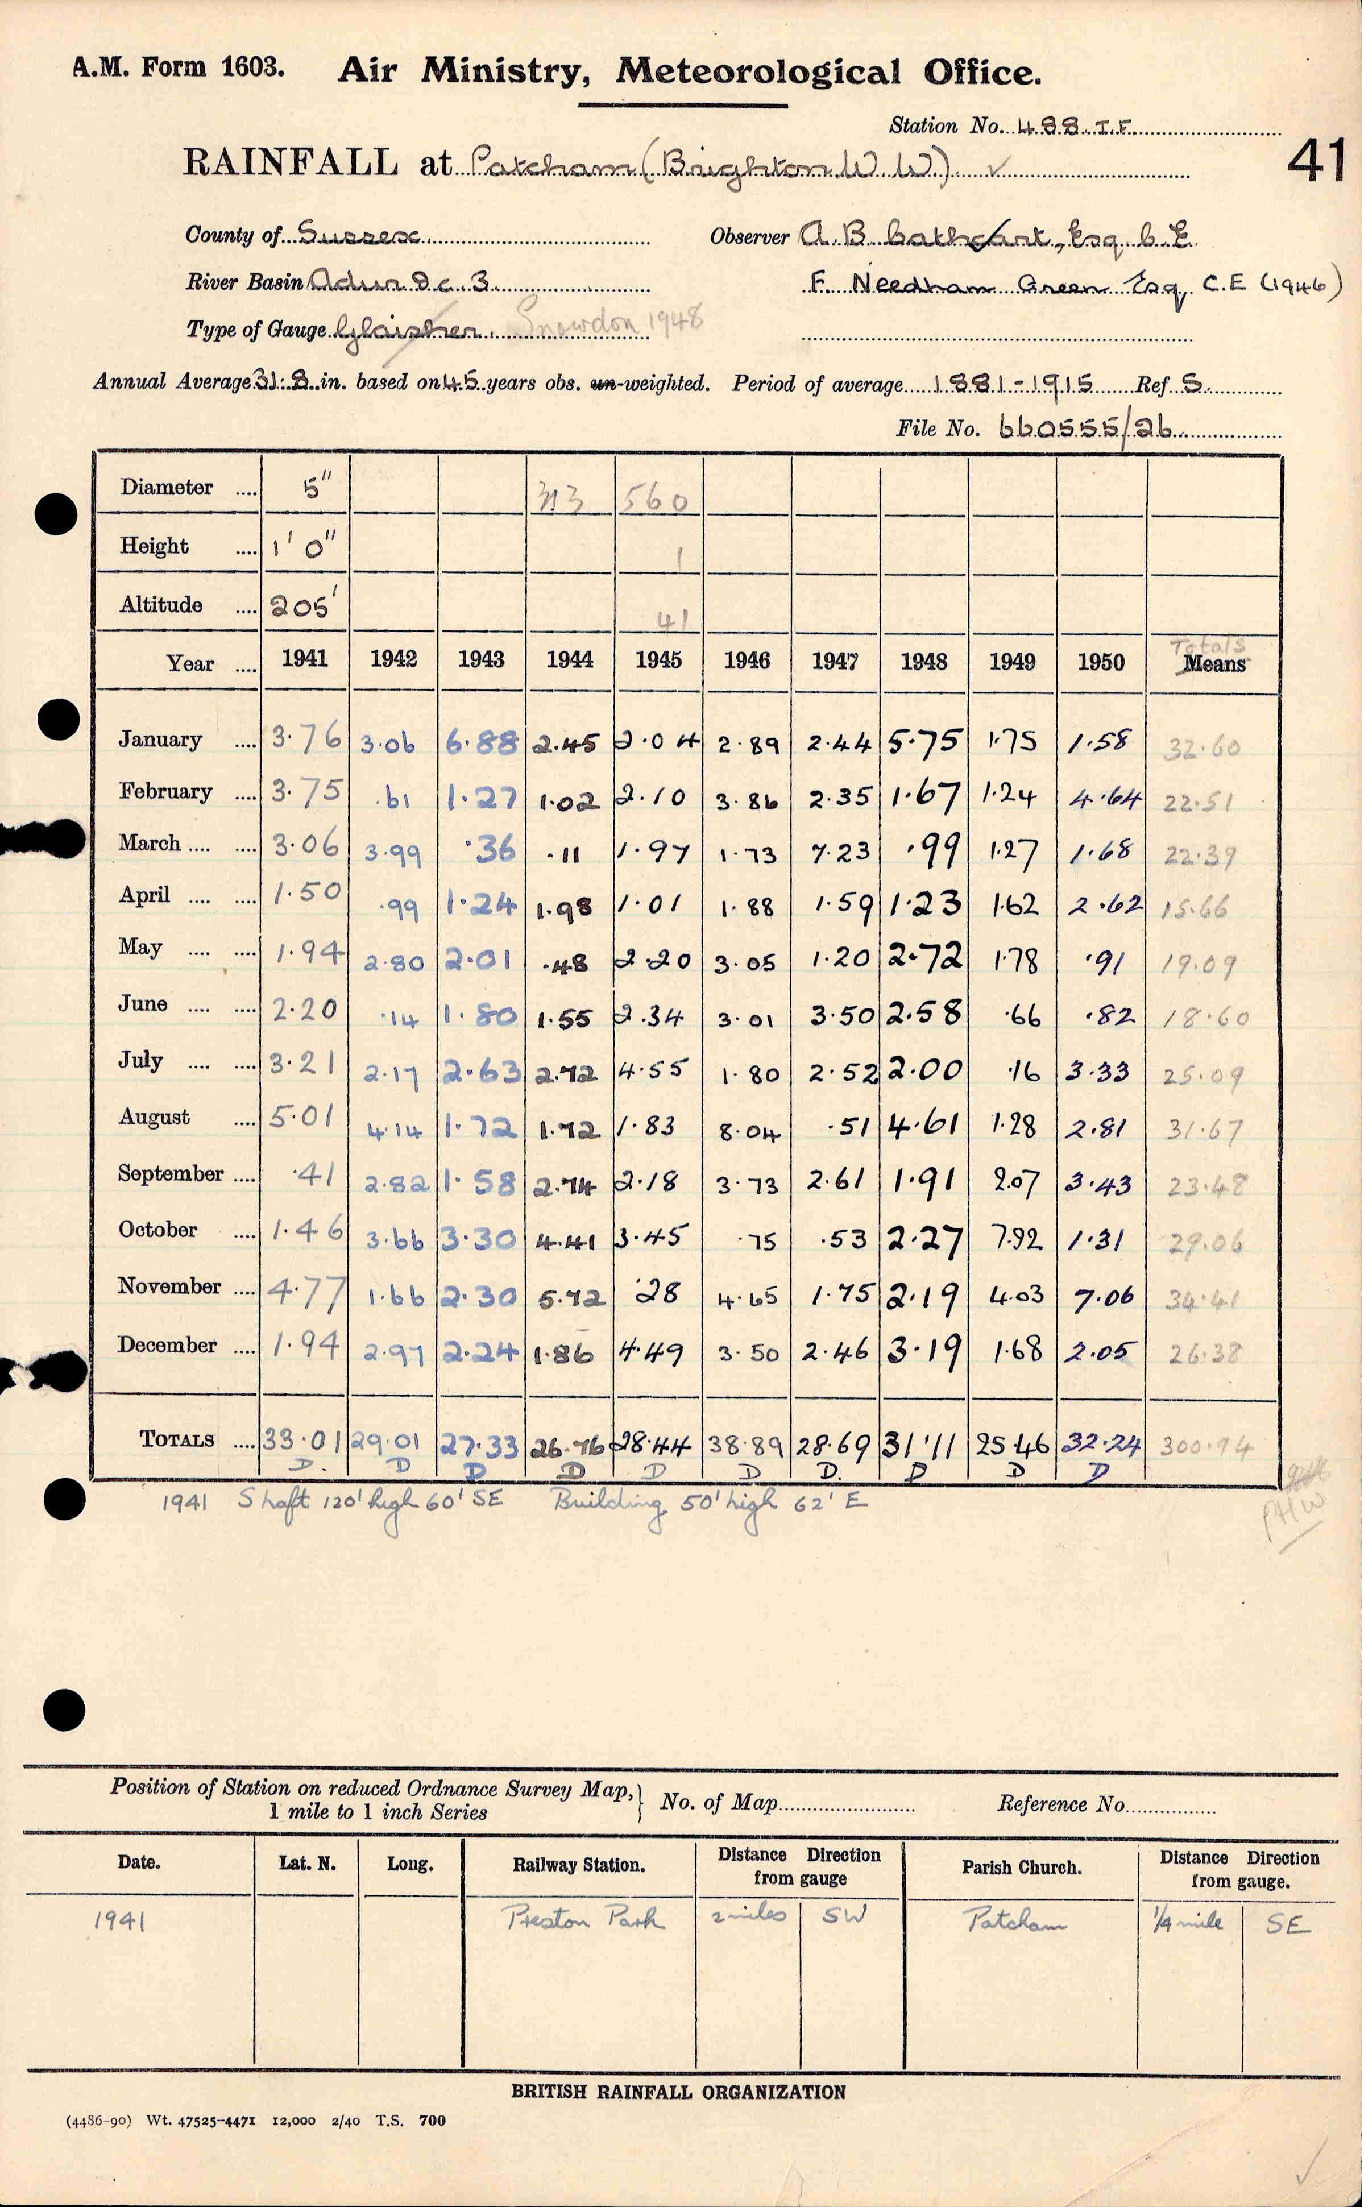 A.M. Form 1603. Air Ministry, Meteorological Office.
Station No. 488.I.F.
RAINFALL at Patcham (Brighton W.W). ✓ 41
County of Sussex Observer A B Cathcart, Esq. C. E
River Basin Adur &c. 3 F. Needham Green Esq C.E (1946)
Type of Gauge Glaisher. Snowdon 1948
Annual Average 31.8 in. based on 45 years obs. un-weighted. Period of average 1881-1915 Ref S.
File No. 660555/26
Diameter .... 5" 313 560
Height .... 1' 0" 1
Altitude .... 205' 41
Totals
Year .... 1941 1942 1943 1944 1945 1946 1947 1948 1949 1950 Means
January .... 3.76 3.06 6.88 2.45 2.04 2.89 2.44 5.75 1.75 1.58 32.60
February .... 3.75 .61 1.27 1.02 2.10 3.86 2.35 1.67 1.24 4.64 22.51
March .... .... 3.06 3.99 .36 .11 1.97 1.73 7.23 .99 1.27 1.68 22.39
April .... .... 1.50 .99 1.24 1.98 1.01 1.88 1.59 1.23 1.62 2.62 15.66
May .... .... 1.94 2.80 2.01 .48 2.20 3.05 1.20 2.72 1.78 .91 19.09
June .... .... 2.20 .14 1.80 1.55 2.34 3.01 3.50 2.58 .66 .82 18.60
July .... .... 3.21 2.17 2.63 2.72 4.55 1.80 2.52 2.00 .16 3.33 25.09
August .... 5.01 4.14 1.72 1.72 1.83 8.04 .51 4.61 1.28 2.81 31.67
September .... .41 2.82 1.58 2.74 2.18 3.73 2.61 1.91 2.07 3.43 23.48
October .... 1.46 3.66 3.30 4.41 3.45 .75 .53 2.27 7.92 1.31 29.06
November .... 4.77 1.66 2.30 5.72 .28 4.65 1.75 2.19 4.03 7.06 34.41
December .... 1.94 2.97 2.24 1.86 4.49 3.50 2.46 3.19 1.68 2.05 26.38
TOTALS .... 33.01 29.01 27.33 26.76 28.44 38.89 28.69 31.11 25.46 32.24 300.94
D. D D D D D D. D D D
1941 Shaft 120' high 60' SE Building 50' high 62' E
PHW
Position of Station on reduced Ordnance Survey Map, } No. of Map Reference No.
1 mile to 1 inch Series
Date. Lat. N. Long. Railway Station. Distance Direction from gauge Parish Church. Distance Direction from gauge.
1941 Preston Park 2 miles SW Patcham 1/4 mile SE
BRITISH RAINFALL ORGANIZATION
(4486-90) Wt. 47525-4471 12,000 2/40 T.S. 700